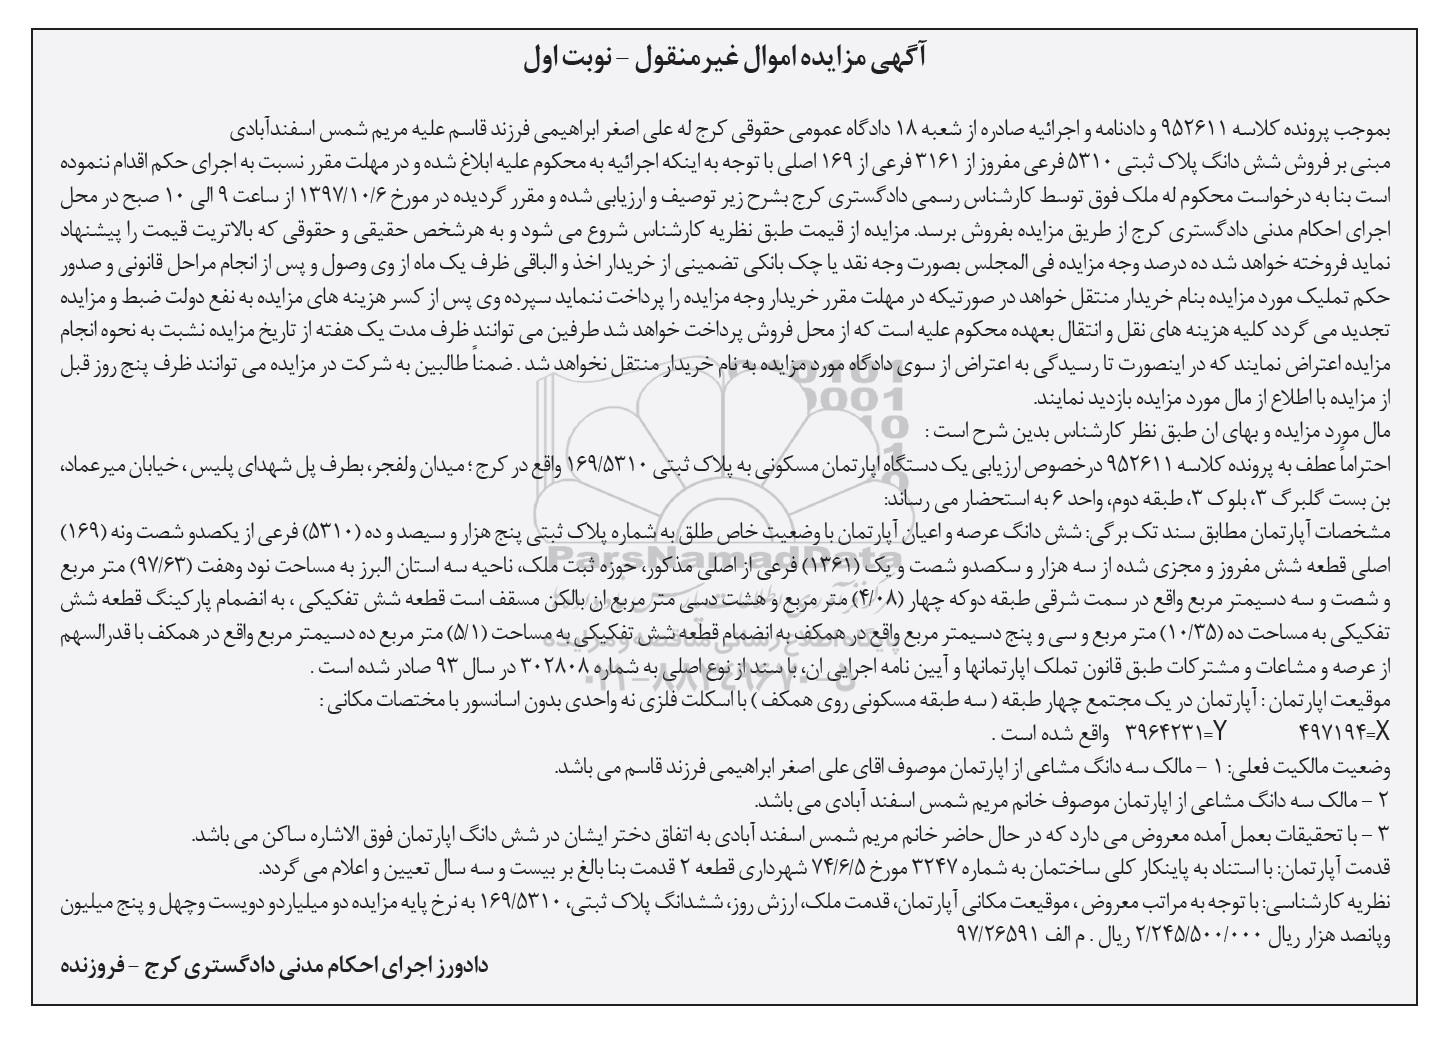 آگهی مزایده اموال غیرمنقول - نوبت اول
بموجب پرونده کلاسه ۹۵۲۶۱۱ و دادنامه و اجرائیه صادره از شعبه ۱۸ دادگاه عمومی حقوقی کرج له علی اصغر ابراهیمی فرزند قاسم علیه مریم شمس اسفندآبادی
مبنی بر فروش شش دانگ پلاک ثبتی ۵۳۱۰ فرعی مفروز از ۳۱۶۱ فرعی از ۱۶۹ اصلی با توجه به اینکه اجرائیه به محکوم علیه ابلاغ شده و در مهلت مقرر نسبت به اجرای حکم اقدام ننموده
است بنا به درخواست محکوم له ملک فوق توسط کارشناس رسمی دادگستری کرج بشرح زیر توصیف و ارزیابی شده و مقرر گردیده در مورخ ۱۳۹۷/۱۰/۶ از ساعت ۹ الی ۱۰ صبح در محل
اجرای احکام مدنی دادگستری کرج از طریق مزایده بفروش برسد. مزایده از قیمت طبق نظریه کارشناس شروع می شود و به هرشخص حقیقی و حقوقی که بالاتریت قیمت را پیشنهاد
نماید فروخته خواهد شد ده درصد وجه مزایده فی المجلس بصورت وجه نقد یا چک بانکی تضمینی از خریدار اخذ و الباقی ظرف یک ماه از وی وصول و پس از انجام مراحل قانونی و صدور
حکم تملیک مورد مزایده بنام خریدار منتقل خواهد در صورتیکه در مهلت مقرر خریدار وجه مزایده را پرداخت ننماید سپرده وی پس از کسر هزینه های مزایده به نفع دولت ضبط و مزایده
تجدید می گردد کلیه هزینه های نقل و انتقال بعهده محکوم علیه است که از محل فروش پرداخت خواهد شد طرفین می توانند ظرف مدت یک هفته از تاریخ مزایده نشبت به نحوه انجام
مزایده اعتراض نمایند که در اینصورت تا رسیدگی به اعتراض از سوی دادگاه مورد مزایده به نام خریدار منتقل نخواهد شد . ضمناً طالبین به شرکت در مزایده می توانند ظرف پنج روز قبل
از مزایده با اطلاع از مال مورد مزایده بازدید نمایند.
مال مورد مزایده و بهای ان طبق نظر کارشناس بدین شرح است :
احتراماً عطف به پرونده کلاسه ۹۵۲۶۱۱ درخصوص ارزیابی یک دستگاه اپارتمان مسکونی به پلاک ثبتی ۱۶۹/۵۳۱۰ واقع در کرج ؛ میدان ولفجر، بطرف پل شهدای پلیس ، خیابان میرعماد،
بن بست گلبرگ ۳، بلوک ۳، طبقه دوم، واحد ۶ به استحضار می رساند:
مشخصات آپارتمان مطابق سند تک برگی: شش دانگ عرصه و اعیان آپارتمان با وضعیت خاص طلق به شماره پلاک ثبتی پنج هزار و سیصد و ده (۵۳۱۰) فرعی از یکصدو شصت ونه (۱۶۹)
اصلی قطعه شش مفروز و مجزی شده از سه هزار و سکصدو شصت و یک (۱۳۶۱) فرعی از اصلی مذکور، حوزه ثبت ملک، ناحیه سه استان البرز به مساحت نود وهفت (۹۷/۶۳) متر مربع
و شصت و سه دسیمتر مربع واقع در سمت شرقی طبقه دوکه چهار (۴/۰۸) متر مربع و هشت دسی متر مربع ان بالکن مسقف است قطعه شش تفکیکی ، به انضمام پارکینگ قطعه شش
تفکیکی به مساحت ده (۱۰/۳۵) متر مربع و سی و پنج دسیمتر مربع واقع در همکف به انضمام قطعه شش تفکیکی به مساحت (۵/۱) متر مربع ده دسیمتر مربع واقع در همکف با قدرالسهم
از عرصه و مشاعات و مشترکات طبق قانون تملک اپارتمانها و آیین نامه اجرایی ان، با سند از نوع اصلی به شماره ۳۰۲۸۰۸ در سال ۹۳ صادر شده است .
موقیعت اپارتمان : آپارتمان در یک مجتمع چهار طبقه ( سه طبقه مسکونی روی همکف ) با اسکلت فلزی نه واحدی بدون اسانسور با مختصات مکانی :
X=۴۹۷۱۹۴ Y=۳۹۶۴۲۳۱ واقع شده است .
وضعیت مالکیت فعلی: ۱ - مالک سه دانگ مشاعی از اپارتمان موصوف اقای علی اصغر ابراهیمی فرزند قاسم می باشد.
۲ - مالک سه دانگ مشاعی از اپارتمان موصوف خانم مریم شمس اسفند آبادی می باشد.
۳ - با تحقیقات بعمل آمده معروض می دارد که در حال حاضر خانم مریم شمس اسفند آبادی به اتفاق دختر ایشان در شش دانگ اپارتمان فوق الاشاره ساکن می باشد.
قدمت آپارتمان: با استناد به پاینکار کلی ساختمان به شماره ۳۲۴۷ مورخ ۷۴/۶/۵ شهرداری قطعه ۲ قدمت بنا بالغ بر بیست و سه سال تعیین و اعلام می گردد.
نظریه کارشناسی: با توجه به مراتب معروض ، موقیعت مکانی آپارتمان، قدمت ملک، ارزش روز، ششدانگ پلاک ثبتی، ۱۶۹/۵۳۱۰ به نرخ پایه مزایده دو میلیاردو دویست وچهل و پنج میلیون
وپانصد هزار ریال ۲/۲۴۵/۵۰۰/۰۰۰ ریال . م الف ۹۷/۲۶۵۹۱
دادورز اجرای احکام مدنی دادگستری کرج - فروزنده
ParsNamadData
پایگاه اطلاع رسانی مناقصه و مزایده
۰۲۱-۸۸۳۴۹۶۷۰-۵